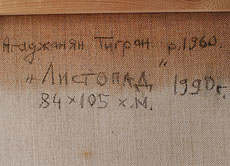 Агаджанян Тигран р. 1960.
„Листопад" 1990г.
84×105 х.м.